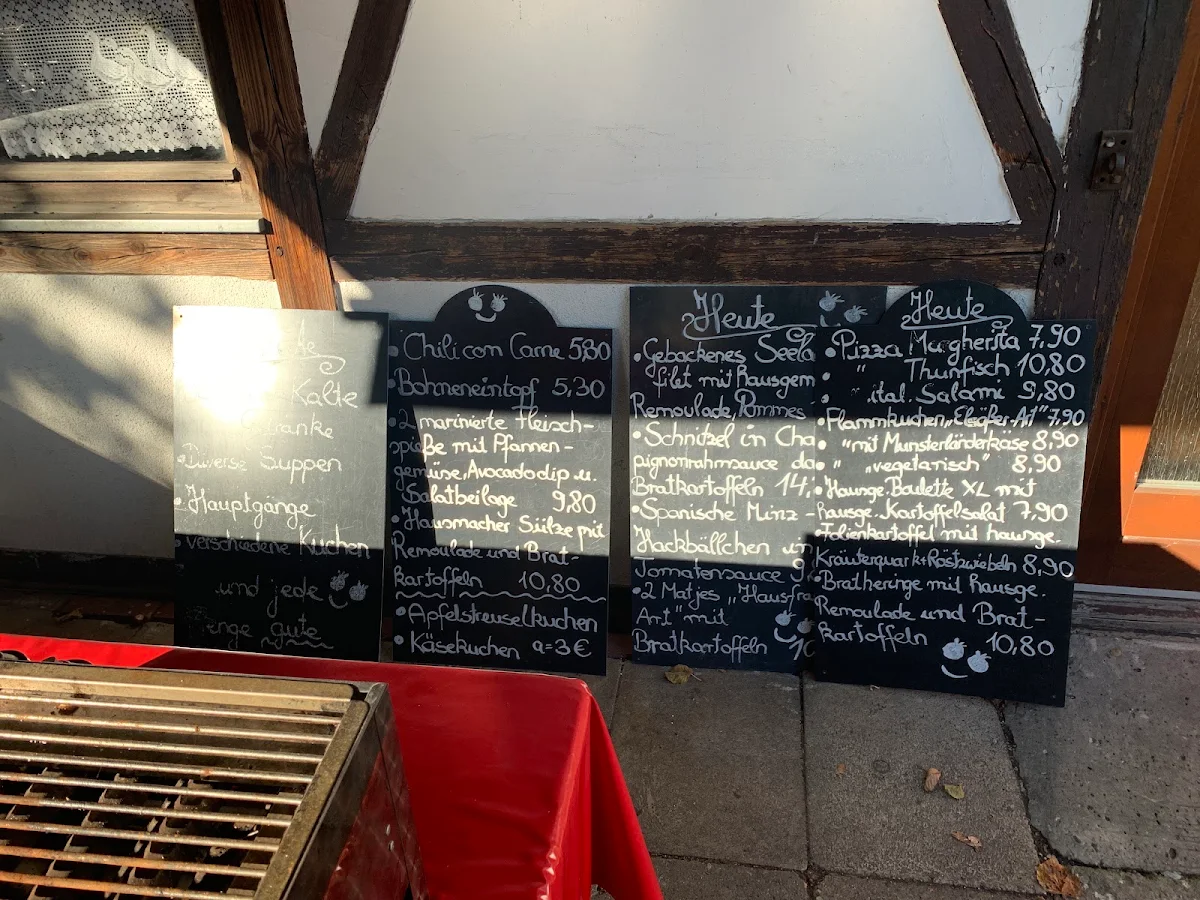 Kalte
• Diverse Suppen
• Hauptgänge
• verschiedene Kuchen
...und jede
gute
• Chili con Carne 5,80
• Bohneneintopf 5,30
• 2 marinierte Fleisch-
spieße mit Pfannen-
gemüse, Avocadodip u.
Salatbeilage 9,80
• Hausmacher Sülze mit
Remoulade und Brat-
kartoffeln 10,80
• Apfelstreuselkuchen
• Käsekuchen a=3€
Heute
• Gebackenes Seela
filet mit hausgem
Remoulade, Pommes
• Schnitzel in Cha
pignonrahmsauce da
Bratkartoffeln 14,
• Spanische Minz-
Hackbällchen in
Tomatensauce 9
• 2 Matjes „Hausfra
Art" mit
Bratkartoffeln 10
Heute
• Pizza Margherita 7,90
• " Thunfisch 10,80
• " ital. Salami 9,80
• Flammkuchen „Elsäßer Art" 7,90
• " mit Munsterländerkäse 8,90
• " „vegetarisch" 8,90
• Hausge. Boulette XL mit
hausge. Kartoffelsalat 7,90
• Folienkartoffel mit hausge.
Kräuterquark+Röstzwiebeln 8,90
• Bratheringe mit hausge.
Remoulade und Brat-
kartoffeln 10,80